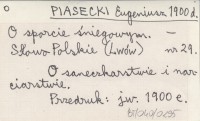 O PIASECKI Eugeniusz 1900 d.
O sporcie śniegowym. —
Słowo Polskie (Lwów) nr 29.
O saneczkarstwie i nar-
ciarstwie.
Przedruk: jw. 1900 c.